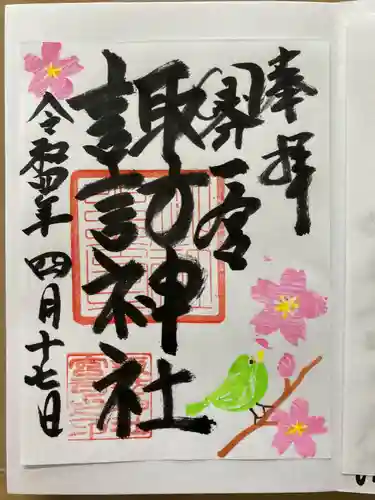 奉拝
一宮
諏訪神社
令和四年 四月十七日